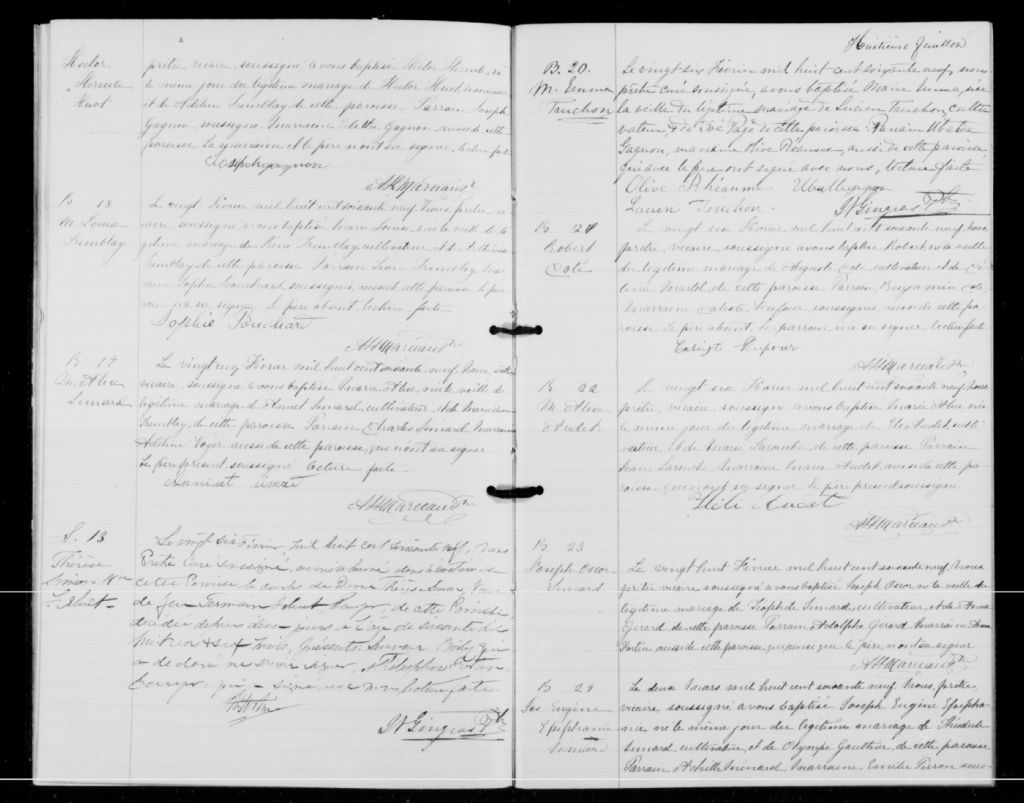 2
Hector
Hercule
Huot
prêtre vicaire, soussigné, avons baptisé Hector Hercule, né
le même jour du légitime mariage de Hector Huot,
et de Adeline Tremblay de cette paroisse Parrain Joseph
Gagnon, soussigné, marraine Gagnon, aussi de cette
paroisse La marraine et le père n'ont su signer. Lecture faite
Joseph gagnon
AH Marceau Ptre
B. 18
M. Louise
Tremblay
Le vingt Février mil huit cent soixante neuf, Nous prêtre, vi-
caire, soussigné, avons baptisé Marie Louise, née la veille du lé-
gitime mariage de Tremblay, cultivateur et de
Tremblay, de cette paroisse Parrain Léon Tremblay, mar-
raine Sophie Bouchard, soussignée, aussi de cette paroisse, le par-
rain n'a su signer, le père absent, lecture faite
Sophie Bouchard
AH Marceau Ptre
B. 19
M. Alice
Simard
Le vingt cinq Février mil huit cent soixante neuf, Nous, prêtre
vicaire, soussigné, avons baptisé Marie Alice, née la veille du
légitime mariage de Simard, cultivateur, et de
Tremblay, de cette paroisse Parrain Charles Simard, Marraine
Adeline aussi de cette paroisse, qui n'ont su signer
Le père présent soussigné. lecture faite
AH Marceau Ptre
S. 13
Thérèse
Simon Vve
Le vingt six Février, mil huit cent soixante neuf, Nous
Prêtre Curé soussigné, avons inhumé dans le cimetière de
cette Paroisse le corps de Dame Thérèse Simon, Vve
de feu Germain de cette Paroisse
décédée depuis deux jours à l'âge de soixante dix
huit ans & six mois, présents Sauveur qui
a déclaré ne savoir signer, & Télesphore
qui a signé avec nous, lecture faite.
N Gingras Ptre
Huitième feuillet
B. 20.
M. Emma
Fauchon
Le vingt six Février mil huit cent soixante neuf, nous
prêtre curé soussigné, avons baptisé Marie Emma, née
la veille du légitime mariage de Lucien Fauchon, culti-
vateur & de Zoé Pagé de cette paroisse. Parrain Ubalde
Gagnon, marraine Olive Rhéaume, aussi de cette paroisse
qui avec le père ont signé avec nous, lecture faite
Olive Rhéaume Ubalde gagnon
Lucien Fauchon.
N Gingras Ptre
B. 21
Robert
Coté
Le vingt six Février mil huit cent soixante neuf, Nous
prêtre, vicaire, soussigné avons baptisé Robert, né la veille
du légitime mariage de Auguste Coté, cultivateur et de Cé-
lina Martel de cette paroisse Parrain Benjamin Coté,
Marraine Calixte Dufour soussignée aussi de cette pa-
roisse le père absent, le parrain n'a su signer, lecture faite
Calixte Dufour
AH Marceau Ptre
B. 22
M. Alice
Audet
Le vingt six Février mil huit cent soixante neuf, Nous
prêtre, vicaire, soussigné avons baptisé Marie Alice née
le même jour du légitime mariage de Elie Audet, culti-
vateur et de Marie Larouche de cette paroisse Parrain
Jean Larouche, Marraine Marie Audet, aussi de cette pa-
roisse, qui n'ont su signer, le père présent soussigné.
Audet
AH Marceau Ptre
B. 23
Joseph Oscar
Simard
Le vingt huit Février mil huit cent soixante neuf, Nous
prêtre vicaire soussigné avons baptisé Joseph Oscar né la veille du
légitime mariage de Joseph Simard, cultivateur, et de Anna
Gérard, de cette paroisse Parrain Adolphe Gérard Marraine Anna
Fortin, aussi de cette paroisse, qui ainsi que le père, n'ont su signer
AH Marceau Ptre
B. 24
Jos Eugène
Epiphanie
Simard
Le deux Mars mil huit cent soixante neuf, Nous, prêtre,
vicaire, soussigné avons baptisé Joseph Eugène Epipha-
nie né le même jour du légitime mariage de Théodule
Simard, cultivateur, et de Olympe Gauthier, de cette paroisse
Parrain Achille Ménard, Marraine Emilie Perron aus-